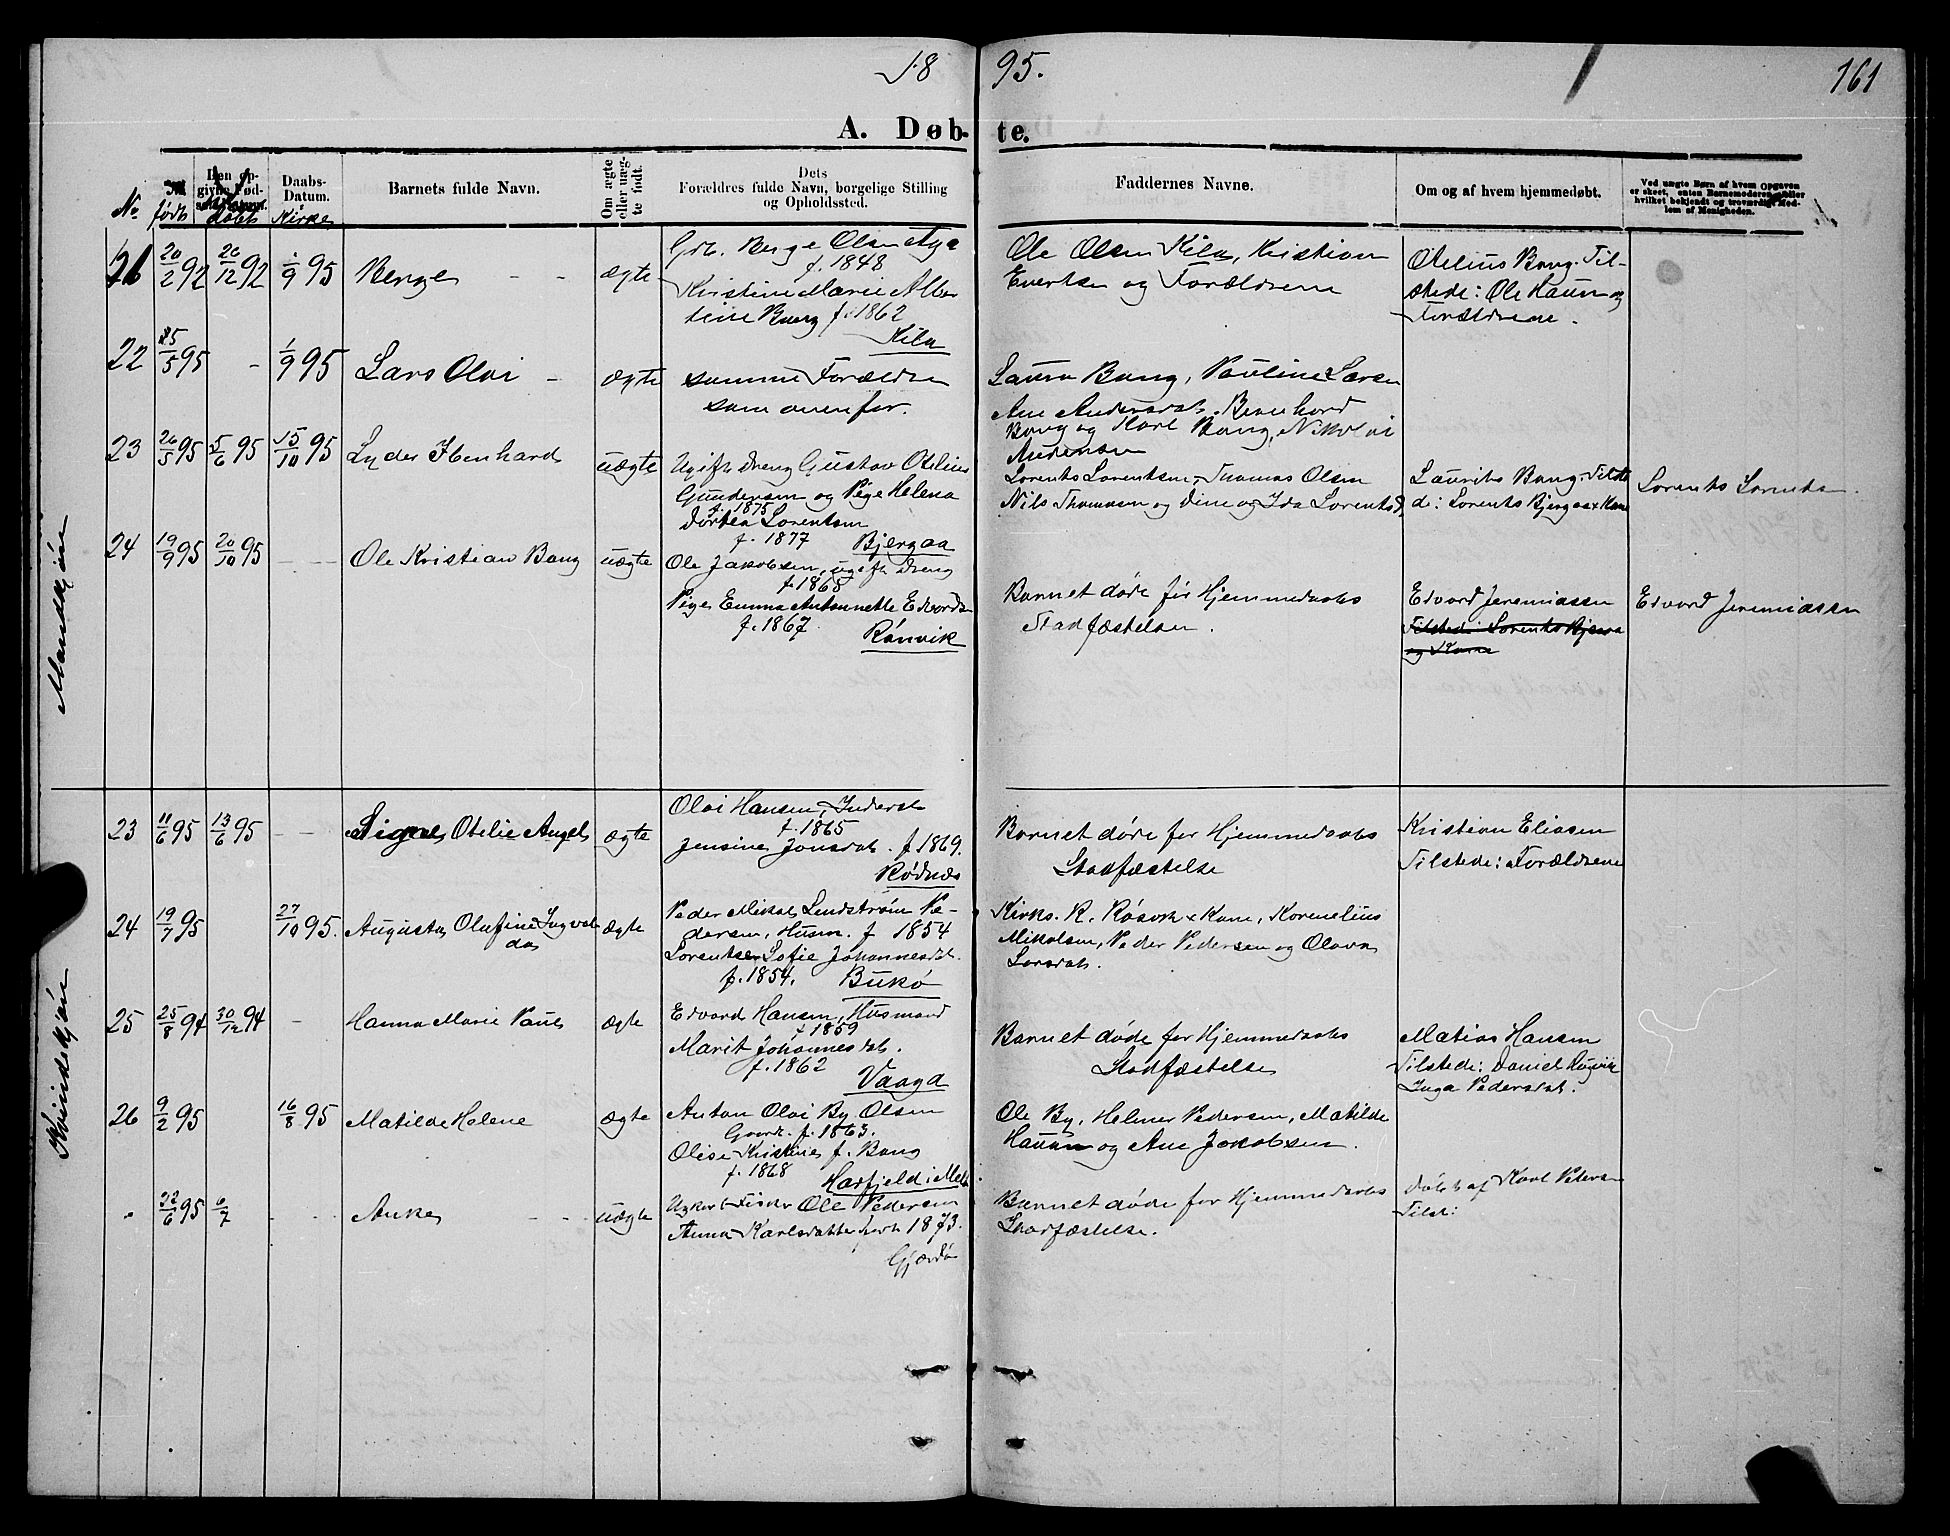 18 95.
161
A. Døb- te.
No
født
Den opgivne Fødselsdatum.
døbt
Daabs-Datum.
Kirke
Barnets fulde Navn.
Om ægte eller uægte født.
Dets
Forældres fulde Navn, borgelige Stilling
og Opholdssted.
Faddernes Navne.
Om og af hvem hjemmedøbt.
Ved uægte Børn af hvem Opgaven
er skeet, enten Barnemoderen eller
hvilket bekjendt og troværdig Med-
lem af Menigheden.
Mandskjøn
21 20/2 92 26/12 92 1/9 95 Berge - - ægte
Grb. Berge Olsen
f. 1848
Kristine Marie Alber
tine Bang f. 1862
Kila
Ole Olsen Kila, Kristian
Evertsen og Forældrene
Otelius Bang. Til-
stede: Ole Haun og
Forældrene.
22 25/5 95 - 1/9 95 Lars Olai - ægte
samme Forældre
som ovenfor.
Laura Bang, Pauline Larsen
Ane Andersdat. Bernhard
Bang og Karl Bang, Nikolai
Andersen
23 26/5 95 5/6 95 15/10 95 Lyder Ibenhard uægte
Ugift dreng Gustav Otelius
Gundersen og Pige Helena
f. 1875
Dortea Lorentsen
f. 1877 Bjergaa
Lorents Lorentsen, Thomas Olsen
Nils Thomsen og Dine og Ida Lorentsd.
Laurits Bang. Tilste
de: Lorents Bjergaa + Kone
Lorents Lorents
24 19/9 95 20/10 95 - - Ole Kristian Bang uægte
Ole Jakobsen, ugift dreng
f. 1865
Pige Emma Antonette Edvards
f. 1867.
Rønvik
Barnet døde før Hjemmedaabs
Stadfæstelsen.
Edvard Jeremiassen
Tilsted: Lorents Bjergaa
og Kone
Edvard Jeremiassen
Kvindekjøn
23 11/6 95 13/6 95 - - Signe Otelie Angel ægte
Olai Hansen, Inderst
f. 1865
Jensine Jonsdat. f 1869.
Rødnæs
Barnet døde før Hjemmedaabs
Stadfæstelse
Kristian Eliasen
Tilstede: Forældrene
24 19/7 95 27/10 95. Augusta Olufine Ingval
da ægte
Peder Mikal Lindstrøm Pe-
dersen, Husm. f 1854
Lorentse Sofie Johannesdat.
f. 1854. Bukø
Kirks. R. Røsvik + Kone, Kornelius
Mikalsen, Peder Pedersen og Olava
Larsdat.
25 25/8 94 30/12 94 - Hanna Marie Paul ægte
Edvard Hansen, Husmand
f 1859
Marit Johannesdat.
f. 1862
Vaaga
Barnet døde før Hjemmedaabs
Stadfæstelse
Matias Hansen
Tilstede: Daniel
Inga Pedersdat.
26 9/2 95 16/8 95 Matilde Helene ægte
Anton Olai By Olsen
Gaardr. f. 1863.
Olise Kristine f. Bang
f. 1868
Harfjeld i Mel
Ole By, Helmer Pedersen, Matilde
Haun og Ane Jakobsen.
22/6 95 6/7 - - Anke - - uægte
Ugkarl Fisker Ole Pedersen
Anna Karlsdatter født 1873.
Gjærdø
Barnet døde før Hjemmedaabs
Stadfæstelse.
døbt af Karl Petersen
Tilst: